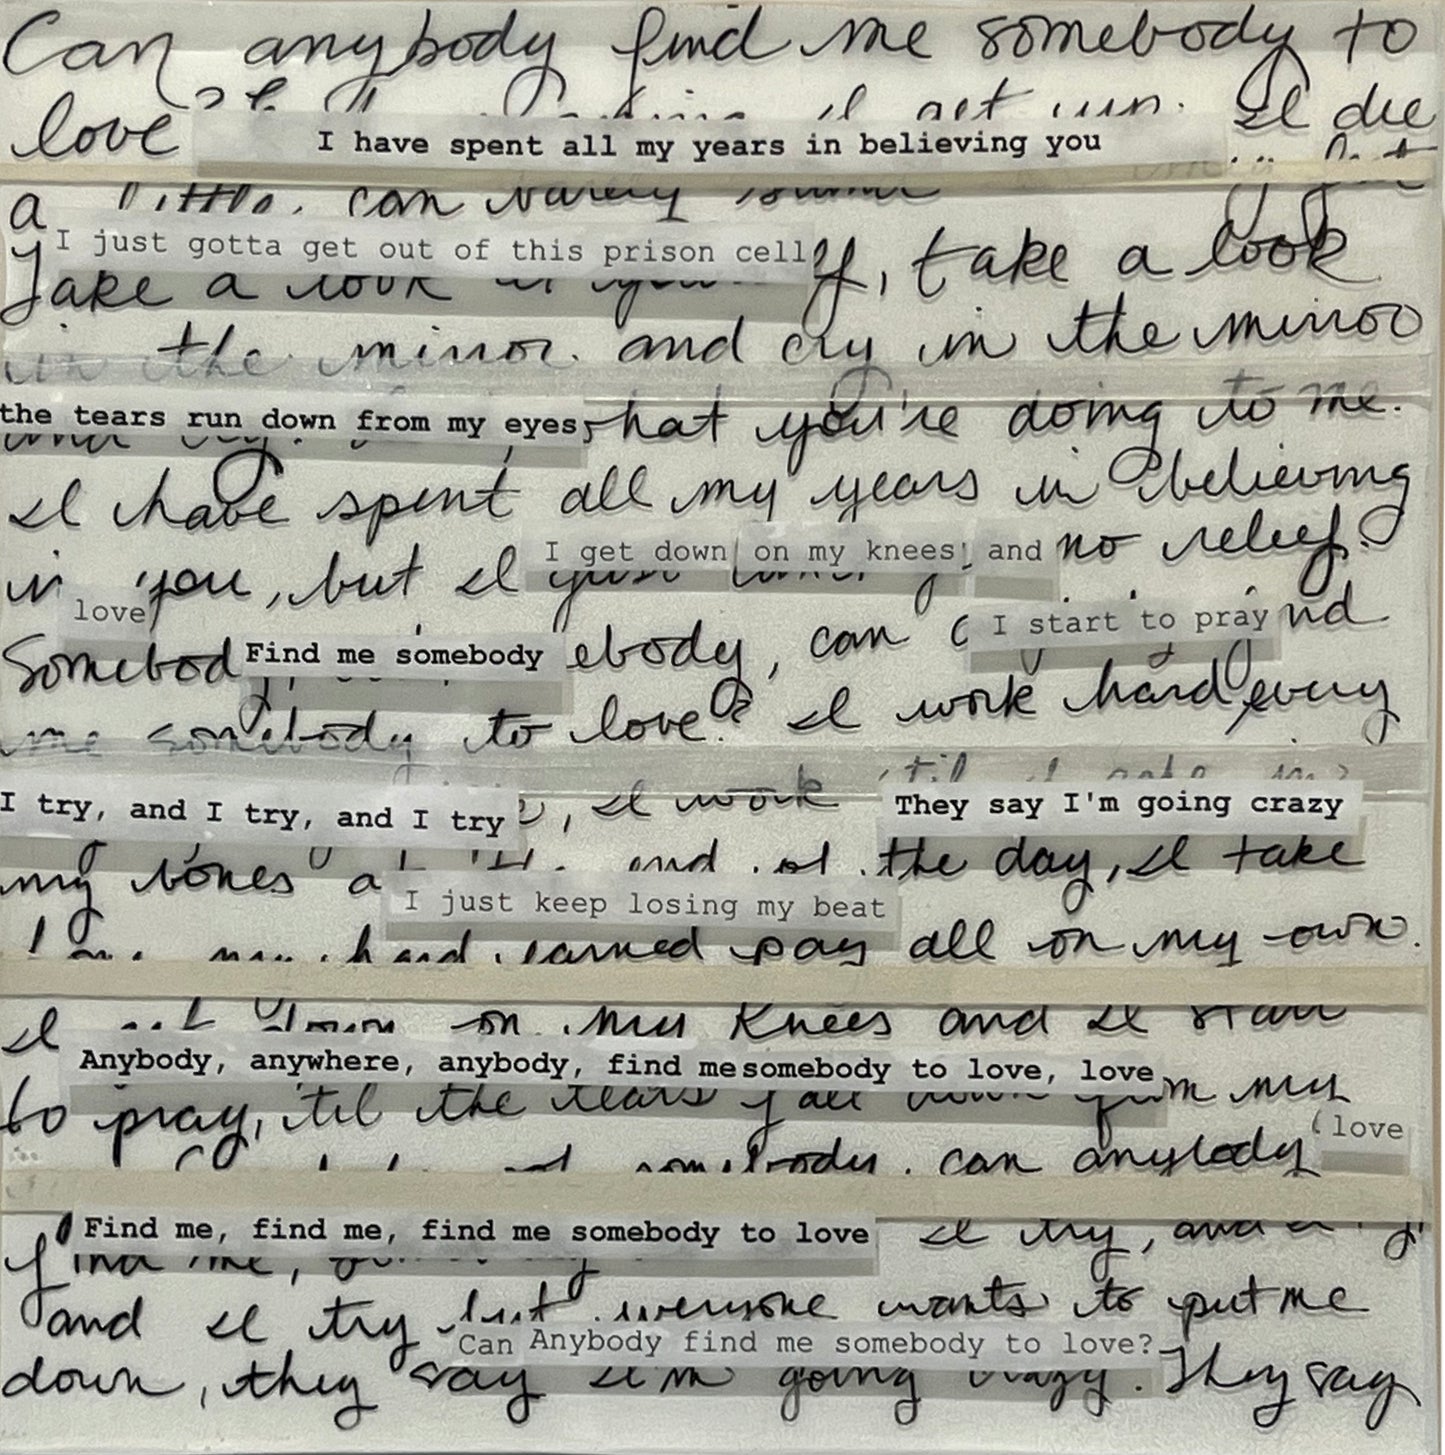 Can anybody find me somebody to
love I get up. I die
I have spent all my years in believing you
a little. can barely
I just gotta get out of this prison cell
Take a look at, take a look
in the mirror. and cry in the mirror
the tears run down from my eyes
what you're doing to me.
I have spent all my years in believing
I get down on my knees, and
in you, but I just no relief.
love
I start to pray
Find me somebody
Somebody, ebody, can
me somebody to love? I work hard every
I try, and I try, and I try
They say I'm going crazy
, I work 'til
my bones the day, I take
I just keep losing my beat
my hard earned pay all on my own.
I down on my knees and I start
Anybody, anywhere, anybody, find me somebody to love, love
to pray, 'til the tears fall down from my
love
somebody. can anybody
Find me, find me, find me somebody to love
find me, I try, and I
and I try but everyone wants to put me
Can Anybody find me somebody to love?
down, they say I'm going crazy. They say